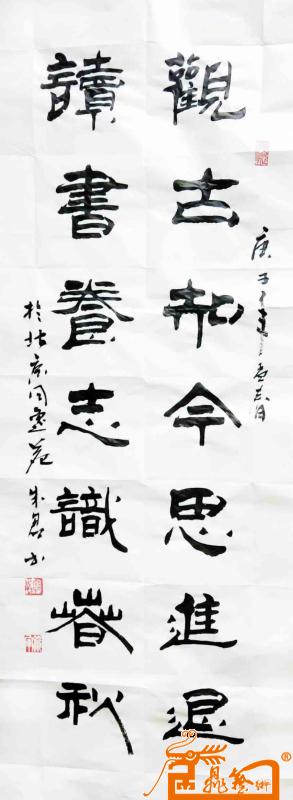 觀古知今思進退
讀書養志識春秋
庚子
於北京
書